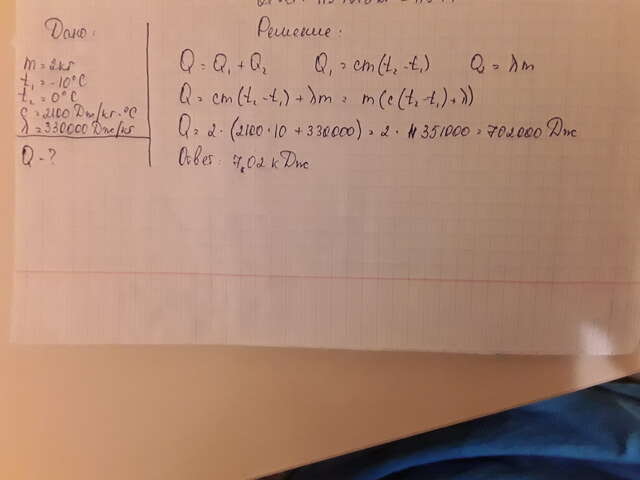 Дано:
m = 2 кг
t₁ = -10°C
t₂ = 0°C
c = 2100 Дж/кг·°C
λ = 330000 Дж/кг
Q - ?
Решение:
Q = Q₁ + Q₂ Q₁ = cm(t₂-t₁) Q₂ = λm
Q = cm(t₂-t₁) + λm = m(c(t₂-t₁)+λ)
Q = 2·(2100·10 + 330000) = 2· 351000 = 702000 Дж
Ответ: 7,02 кДж